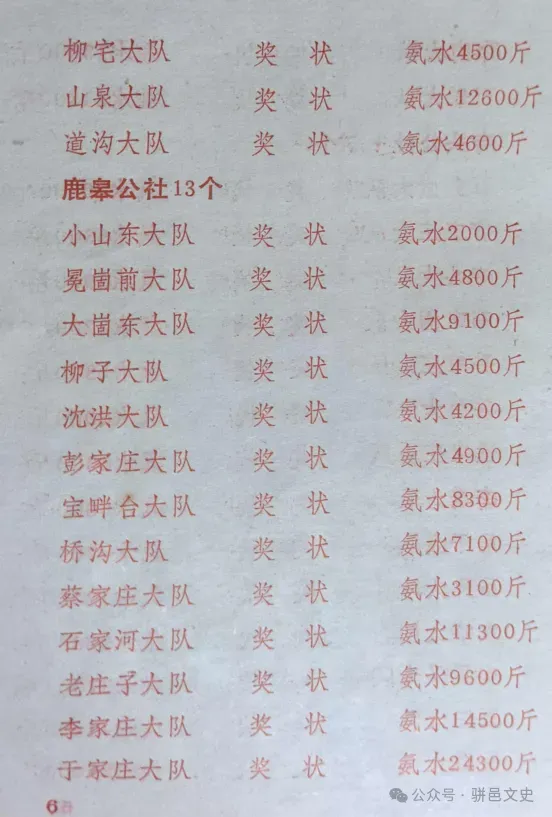 柳宅大队 奖 状 氨水4500斤
山泉大队 奖 状 氨水12600斤
道沟大队 奖 状 氨水4600斤
鹿皋公社13个
小山东大队 奖 状 氨水2000斤
晃崮前大队 奖 状 氨水4800斤
大崮东大队 奖 状 氨水9100斤
柳子大队 奖 状 氨水4500斤
沈洪大队 奖 状 氨水4200斤
彭家庄大队 奖 状 氨水4900斤
宝畔台大队 奖 状 氨水8300斤
桥沟大队 奖 状 氨水7100斤
蔡家庄大队 奖 状 氨水3100斤
石家河大队 奖 状 氨水11300斤
老庄子大队 奖 状 氨水9600斤
李家庄大队 奖 状 氨水14500斤
于家庄大队 奖 状 氨水24300斤
6
公众号·骈邑文史